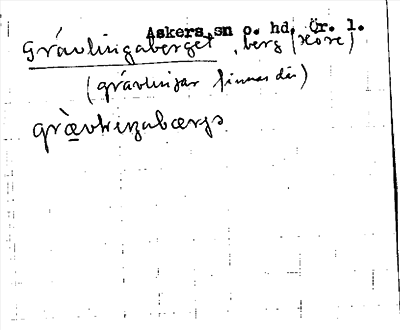 Askers sn o. hd, Ör. l.
Grävlingaberget, berg (större)
(grävlingar finnas där)
grævliŋabærjə